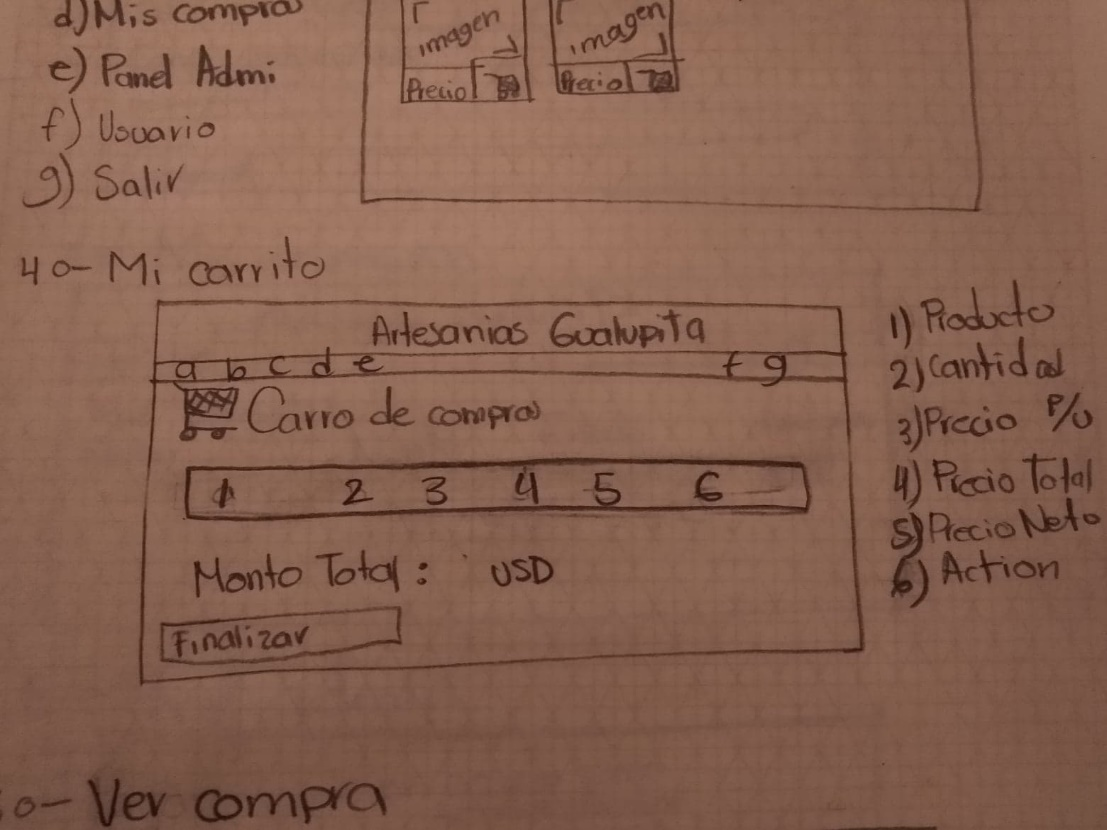 d) Mis compra
e) Panel Admi
f) Usuario
g) Salir
imagen
Precio
imagen
Precio
4o- Mi carrito
Artesanias Gualupita
a b c d e f g
Carro de compras
1 2 3 4 5 6
Monto Total: USD
Finalizar
1) Producto
2) Cantidad
3) Precio P/U
4) Precio Total
5) Precio Neto
6) Action
o- Ver compra